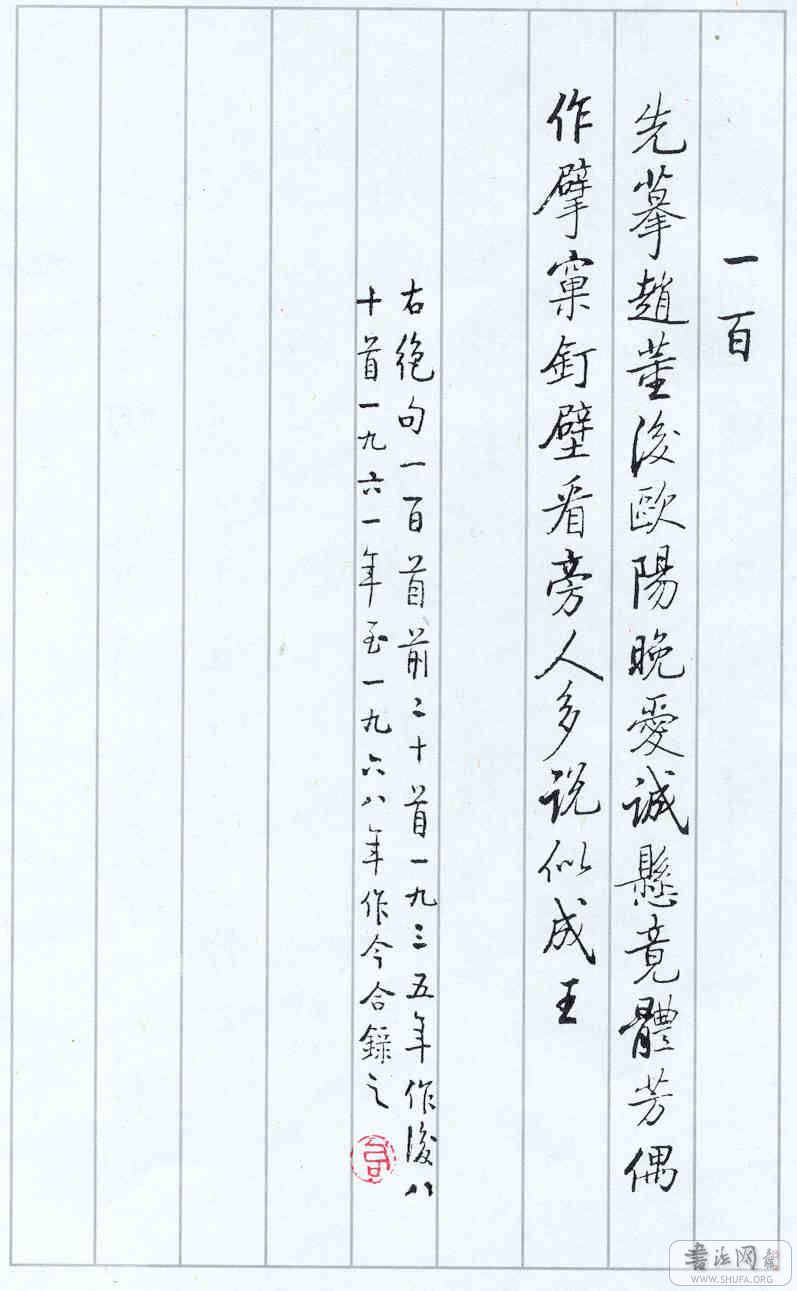 一百
先摹趙董後歐陽晚愛誠懸竟體芳偶
作擘窠釘壁看旁人多说似成王
右絶句一百首前二十首一九三五年作後八
十首一九六一年至一九六八年作今合錄之
书法网
WWW.SHUFA.ORG